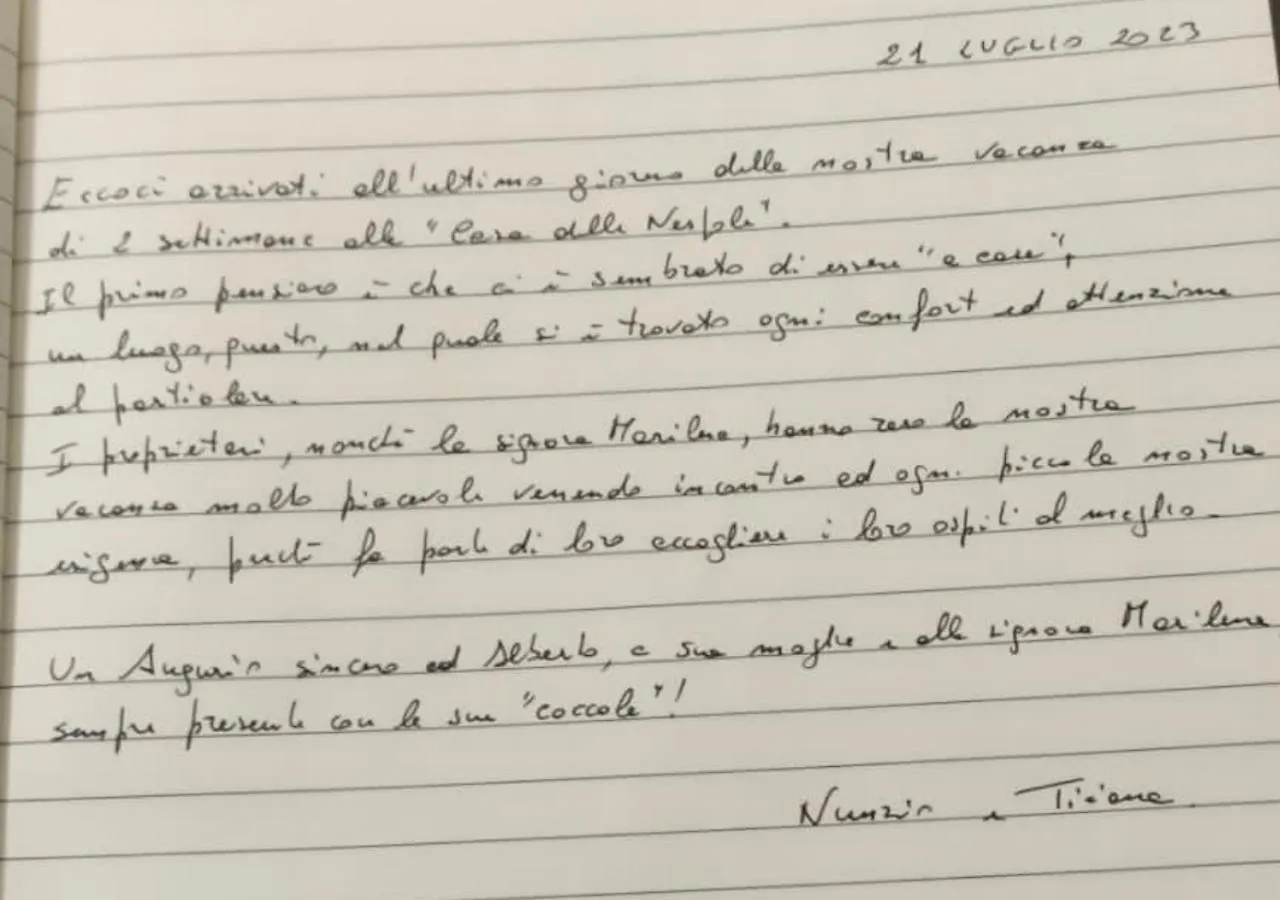 21 LUGLIO 2023
Eccoci arrivati all'ultimo giorno della nostra vacanza
di 2 settimane alla "Casa delle Nespole".
Il primo pensiero è che ci è sembrato di essere "a casa",
un luogo, questo, nel quale si è trovato ogni comfort ed attenzione
al particolare.
I proprietari, nonché la signora Marilena, hanno reso la nostra
vacanza molto piacevole venendo incontro ad ogni piccola nostra
esigenza, perché fa parte di loro accogliere i loro ospiti al meglio.
Un Augurio sincero ad Alberto, a sua moglie e alla signora Marilena
sempre presente con le sue "coccole"!
Nunzio e Tiziana